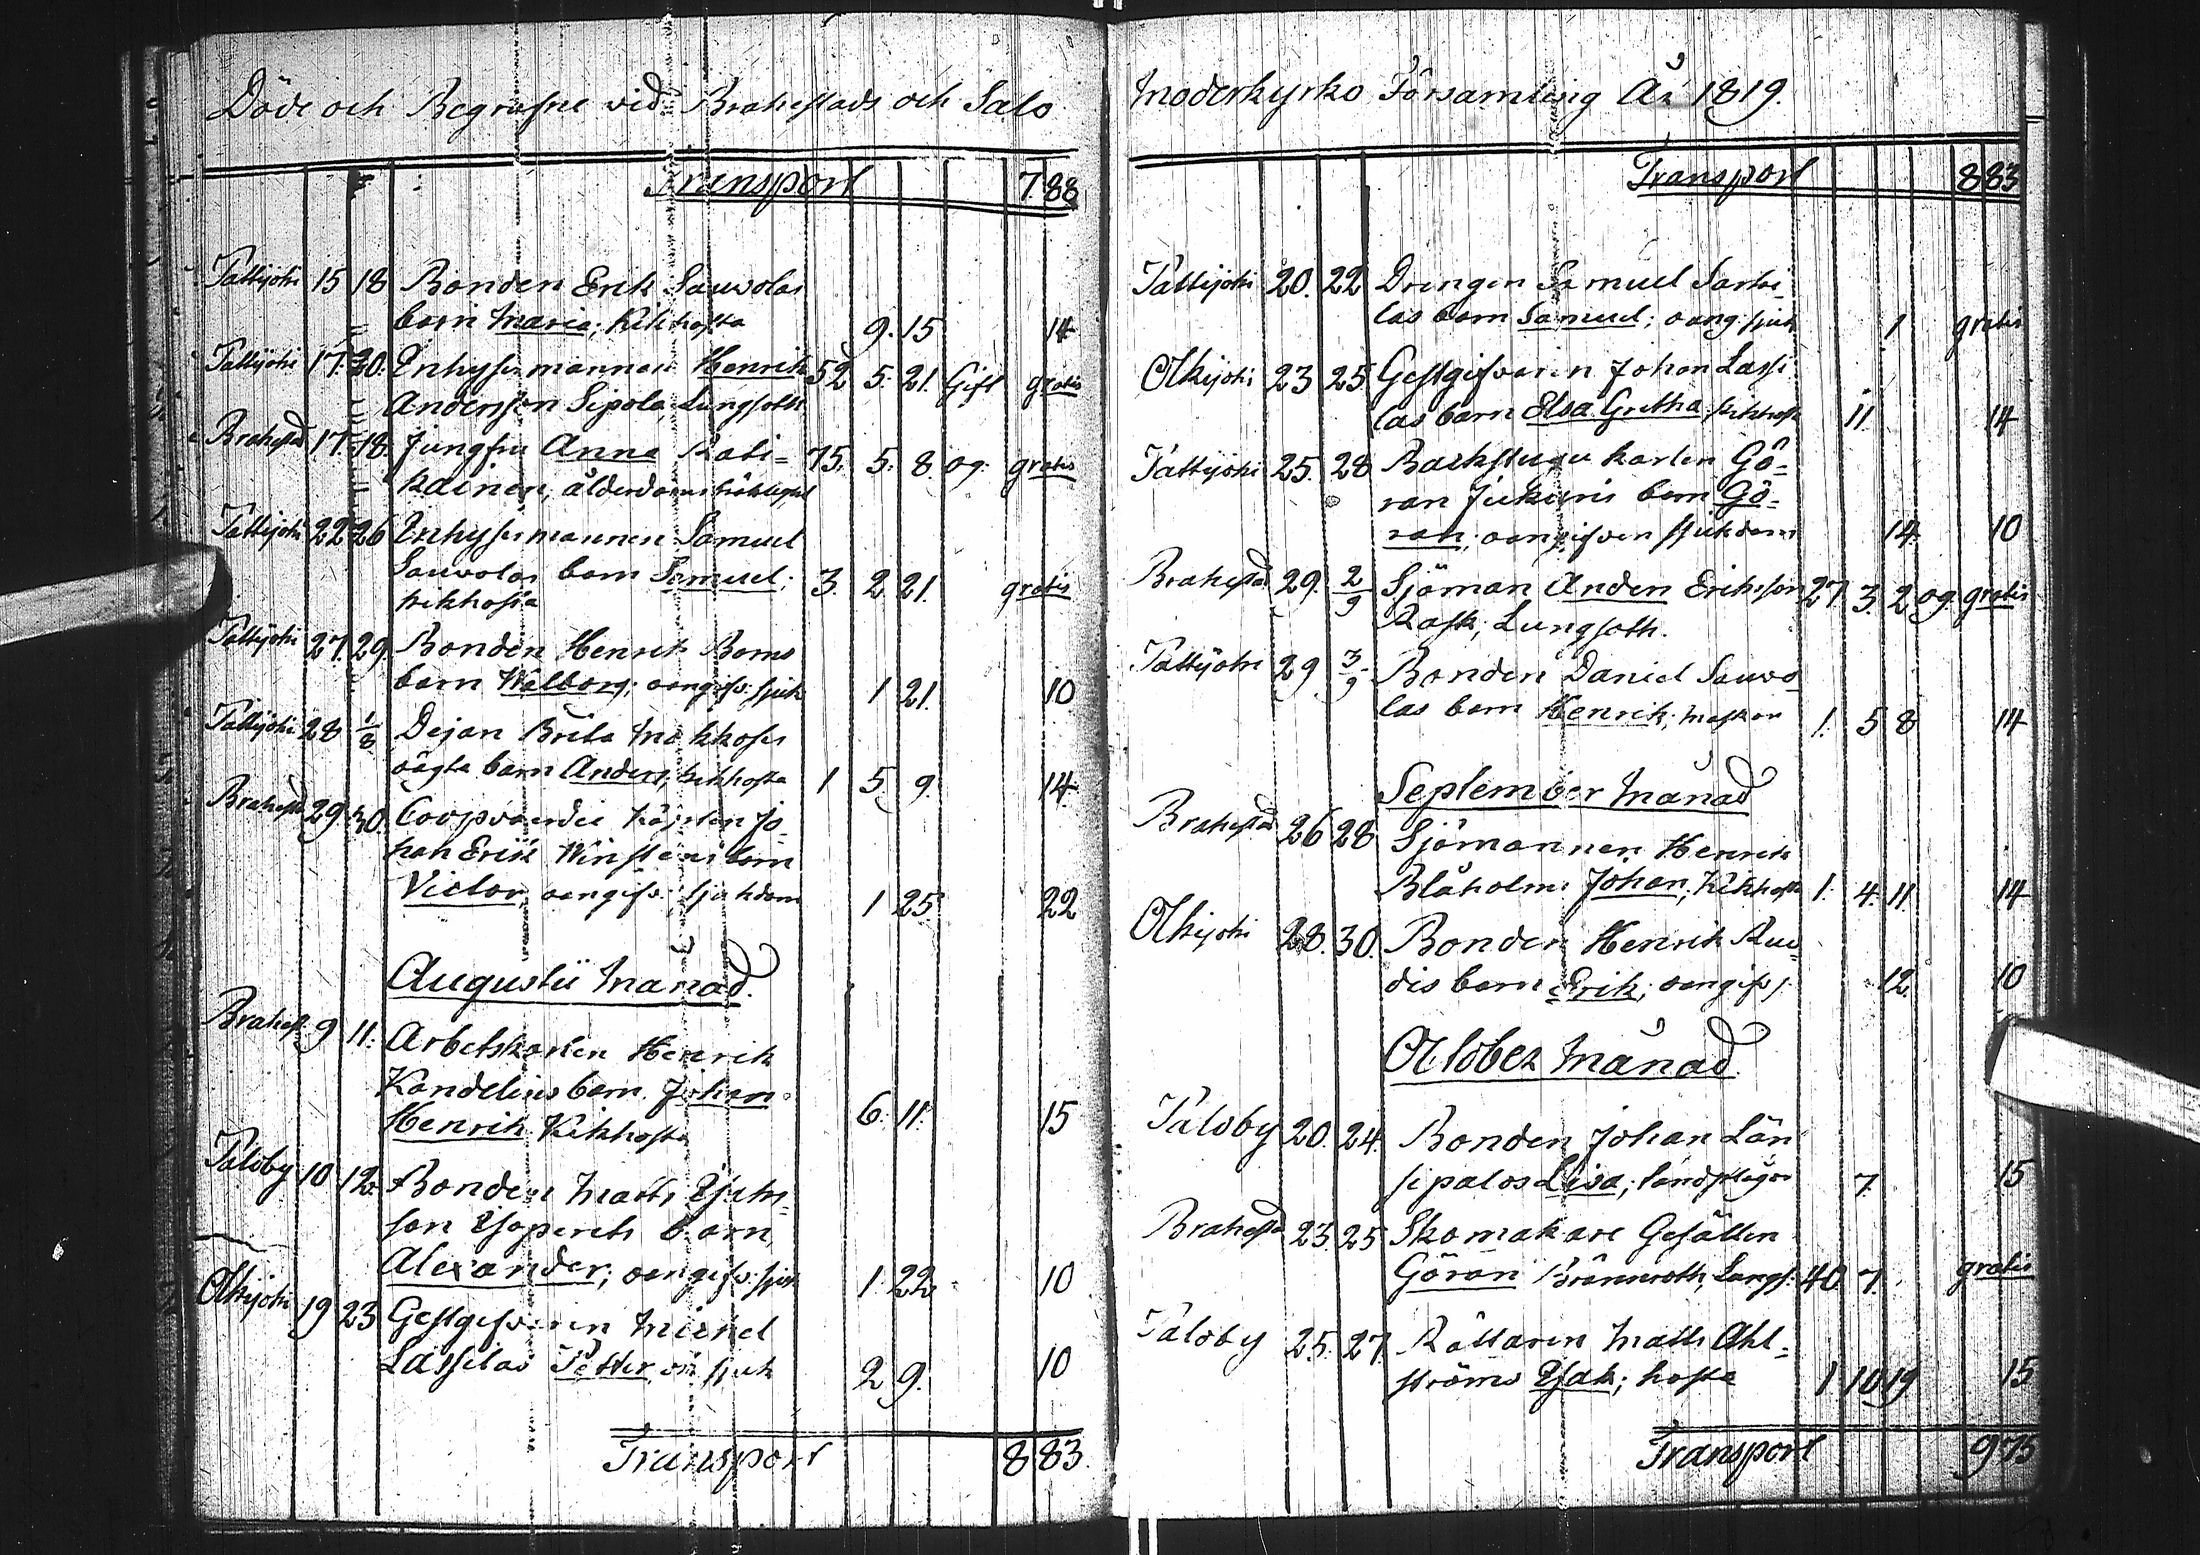 Döde och Begrafne vid Brahestads och Salo
Transport 788
Pattijoki 15 18 Bonden Erik Sauvolas
barn Maria; Kikhosta 9. 15 14
Pattijoki 17. 20. Inhysesmannen Henrik 52 5. 21. Gift gratis
Andersson Sipola, Lungsoth
Brahestad 17. 18. Jungfru Anna Kati- 75. 5. 8. og. gratis
kainen, ålderdoms bräcklighet
Pattijoki 22 26 Inhysesmannen Samuel
Sauvolas barn Samuel; 3. 2 21. gratis
kikhosta
Pattijoki 27. 29. Bonden Henrik Boms
barn Walborg; oangifv. sjuk 1 21. 10
Pattijoki 28 1/8 Dejan Brita
oägta barn Anders, kikhosta 1 5. 9. 14
Brahest. 29. 30. Coopvaerdie Kapten Jo-
han Erik Winstens barn
Victor, oangifv. sjukdom 1 25. 22
Augustii Månad.
Brahest. 9 11. Arbetskarlen Henrik
Kandelins barn Johan
Henrik Kikhosta 6. 11. 15
Saloby 10 12. Bonden Matts Isaks-
son barn
Alexander; oangifv. sjuk 1. 22. 10
Olkijoki 19 23 Gestgifvaren Michel
Lassilas Petter, sjuk 2 9. 10
Transport 883
Moderkyrko Församling År 1819.
Transport 883
Pattijoki 20. 22 Drengen Samuel
las barn Samuel; oang. sjuk 1 gratis
Olkijoki 23 25 Gestgifvaren Johan Lassi
las barn Elsa Gretha, kikhosta 11. 14
Pattijoki 25. 28 Backstugu karlen Gö-
ran Jukuris barn Gö-
ran; oangifven sjukdom 14. 10
Brahestad 29. 2/9 Sjöman Anders Ericsson 27. 3. 2 og. gratis
Rask, Lungsoth.
Pattijoki 29 3/9 Bonden Daniel Sauvo-
las barn Henrik; Maskar 1. 5 8 14
September Månad
Brahestad 26 28 Sjömannen Henrik
Blåholms Johan; Kikhosta 1. 4. 11. 14
Olkijoki 28. 30. Bonden Henrik Ruu-
dis barn Erik; oangifv. 12. 10
October Månad.
Saloby 20. 24. Bonden Johan Län
sipalos Lisa; landplågor 7. 15
Brahestad 23. 25 Skomakare Gesällen
Göran Brännroth, Lungs. 40 7. gratis
Saloby 25. 27. Rättaren Matts Ahl-
ströms Isak; hosta 1 10 19 15
Transport 975